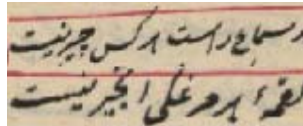 بر سماع راست هر کس چیر نیست
لقمهٔ هر مرغکی انجیر نیست